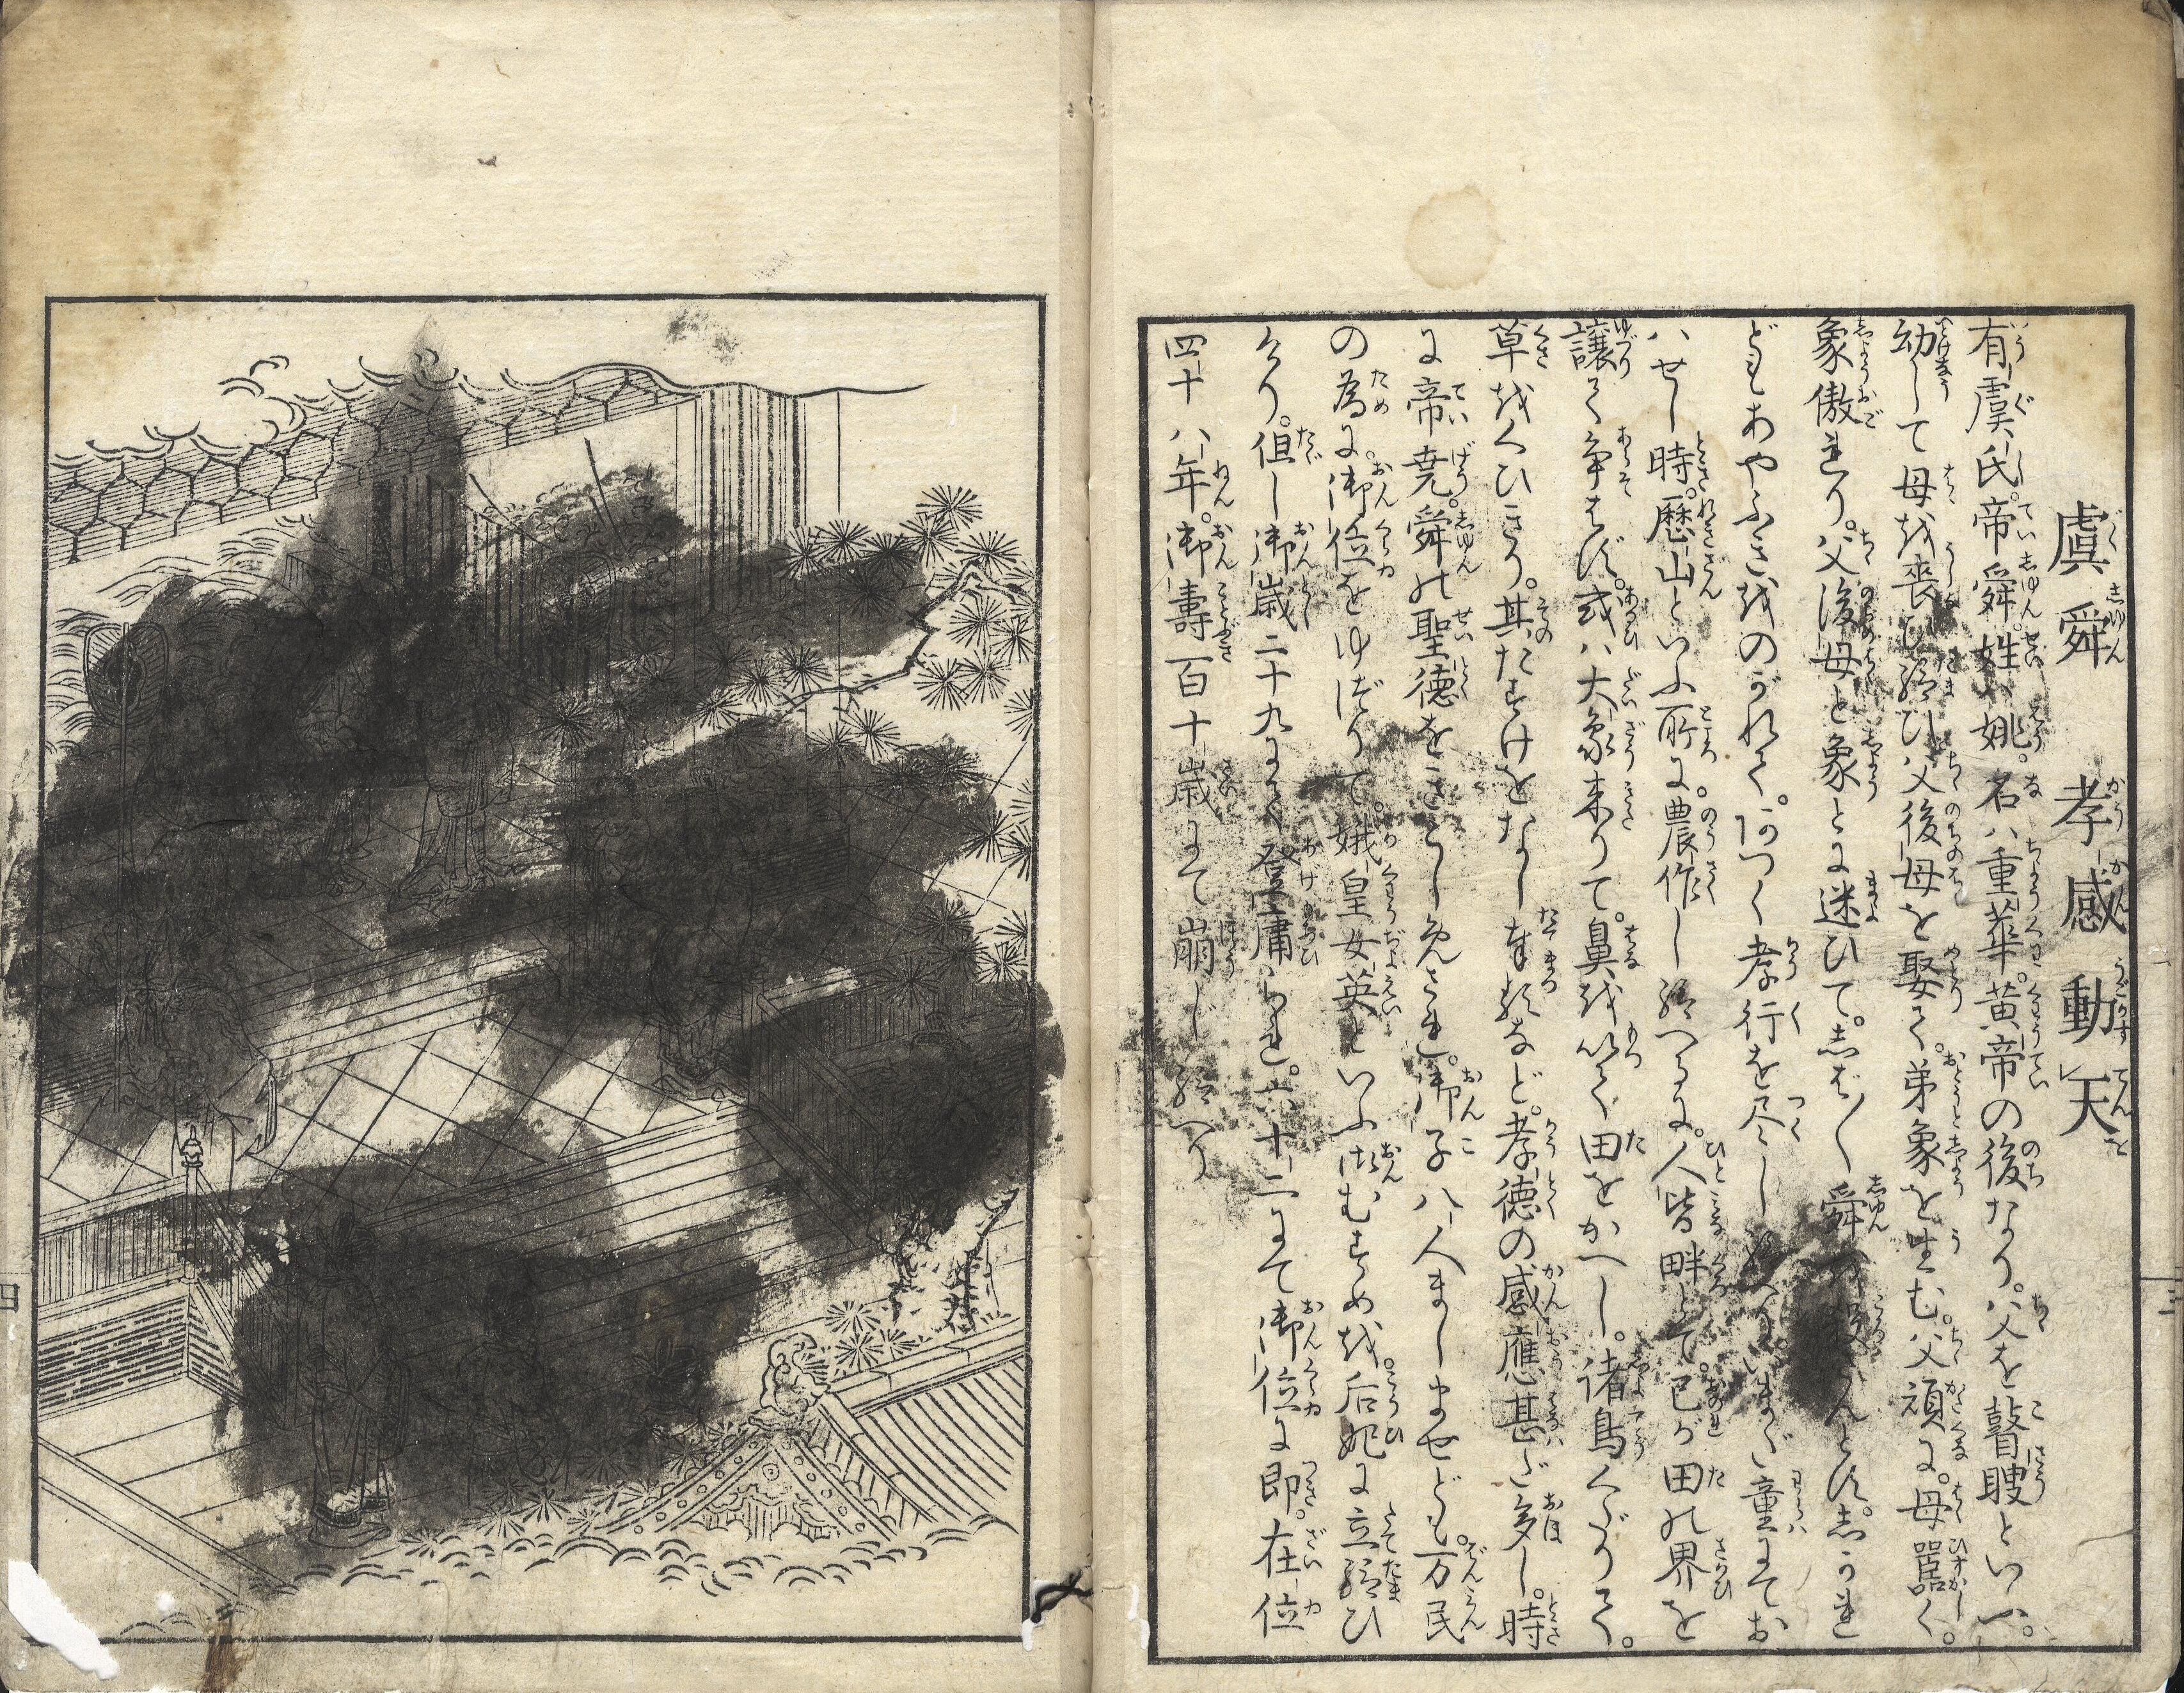 虞舜 孝感動天
有虞氏。帝舜。姓ハ姚。名ハ重華。黄帝の後なり。父を瞽瞍といへ。
幼して母を喪ひ給ひ父後母を娶て。弟象を生む。父頑に。母嚚く。
象傲れり。父後母と象とに迷ひて。志ば〱舜を殺さんとす。志かれ
どもあやふきをのがれて。いつく孝行を尽し給へり。いまだ童にてお
ハせし時。歴山といふ所に。農作し給へるに。人皆畔とて。己が田の界を
譲て争はず。或ハ大象来りて。鼻を以て田をかへし。諸鳥くだりて。
草をくひきり。其たすけをなし奉類など。孝徳の感應甚だ多し。時
に帝尭。舜の聖徳をきこしめされ。御子八人ましませども。万民
の為に。御位をゆづりて。娥皇女英といふ御むすめを。后妃に立給ひ
けり。但し御歳二十九にて登庸られ。六十二にて御位に即。在位
四十八年。御壽百十歳にて崩じ給へり
三
四